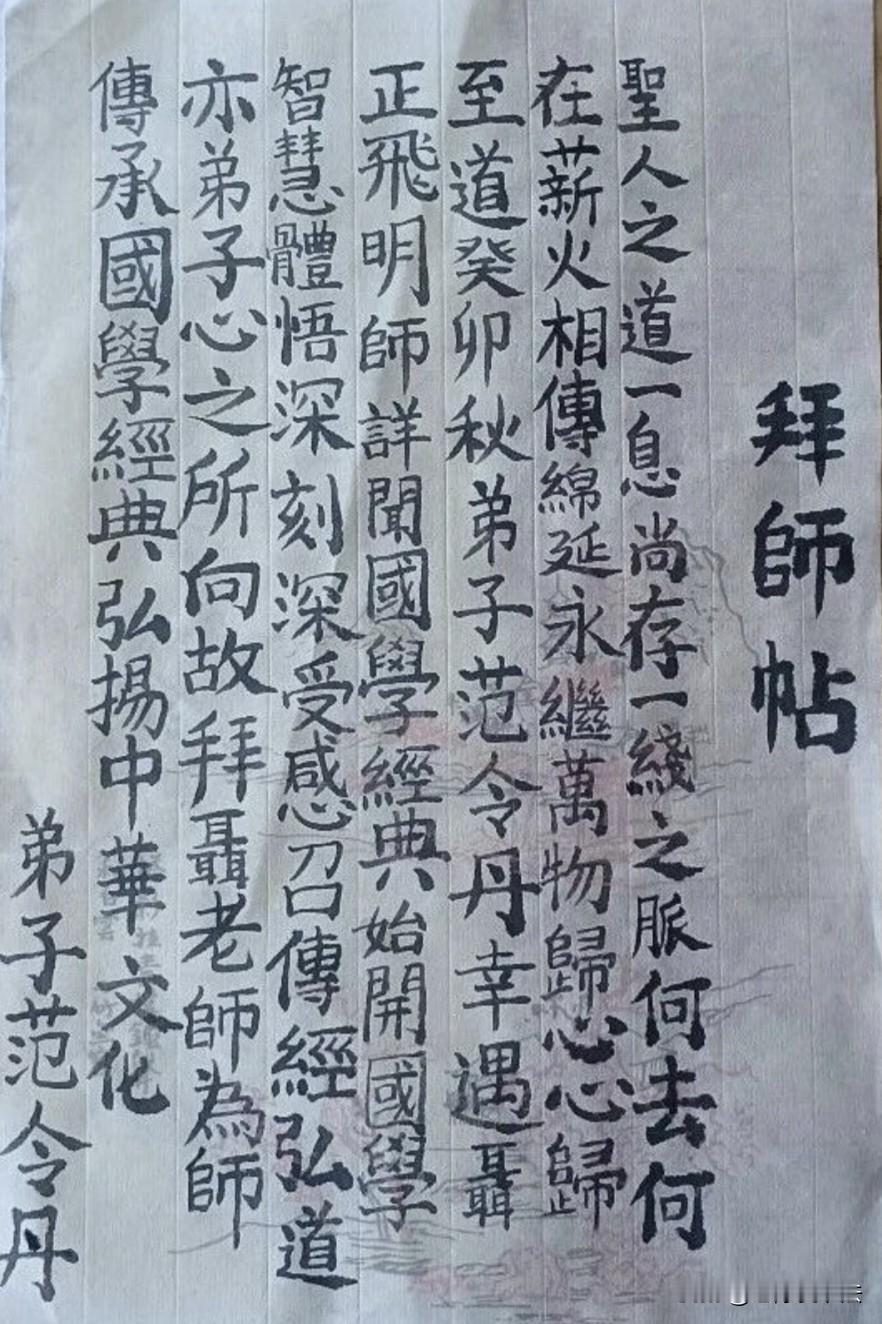 拜師帖
聖人之道一息尚存一綫之脈何去何
在薪火相傳綿延永繼萬物歸心心歸
至道癸卯秋弟子范令丹幸遇聶
正飛明師詳聞國學經典始開國學
智慧體悟深刻深受感召傳經弘道
亦弟子心之所向故拜聶老師為師
傳承國學經典弘揚中華文化
弟子范令丹